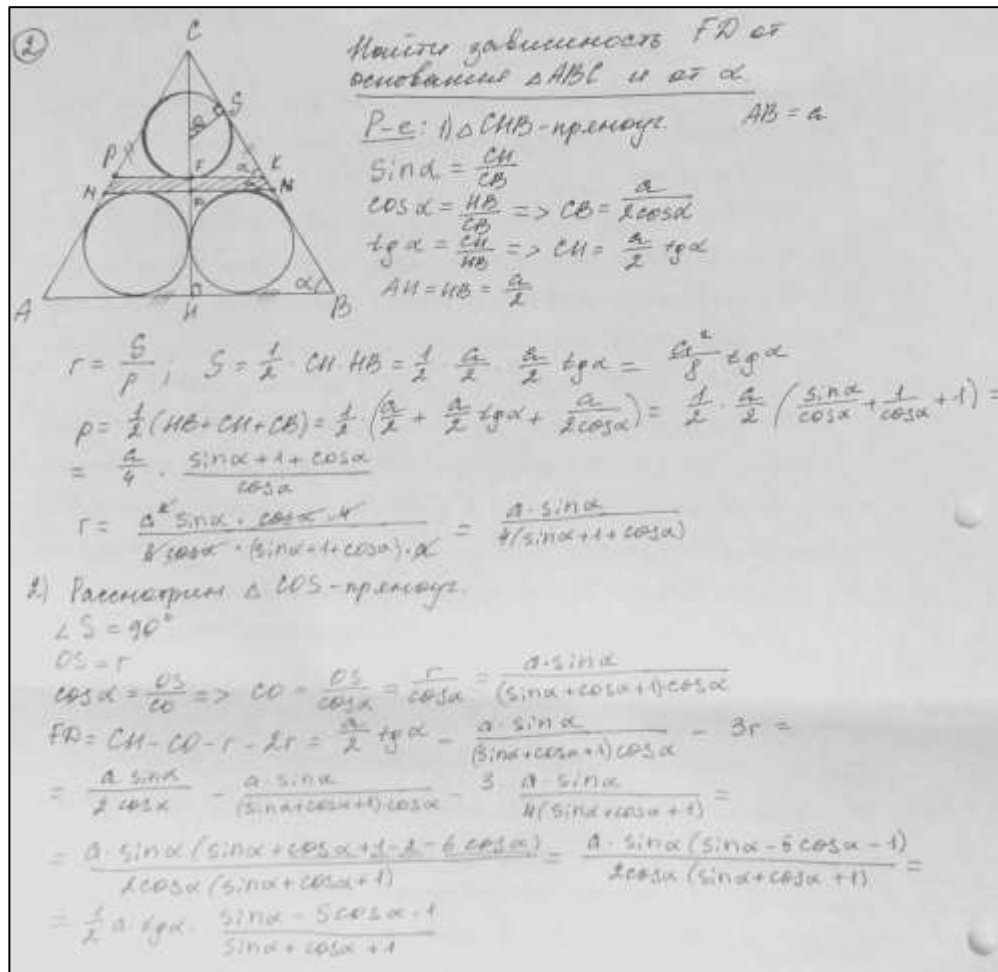 ②
Найти зависимость FD от
основания △ABC и от α
C
S
P
F
α
K
M
N
A
H
α
B
Р-е: 1) △CHB - прямоуг. AB = a
sinα = CH/CB
cosα = HB/CB => CB = a/2cosα
tgα = CH/HB => CH = a/2 tgα
AH = HB = a/2
r = S/p ; S = 1/2 · CH · HB = 1/2 · a/2 · a/2 tgα = a²/8 tgα
p = 1/2 (HB + CH + CB) = 1/2 · (a/2 + a/2 tgα + a/2cosα) = 1/2 · a/2 (sinα/cosα + 1/cosα + 1) =
= a/4 · (sinα + 1 + cosα)/cosα
r = (a² sinα · cosα · 4)/(8 cosα · (sinα + 1 + cosα) · a) = (a · sinα)/(4(sinα + 1 + cosα))
2) Рассмотрим △ COS - прямоуг.
∠S = 90°
OS = r
cosα = OS/CO => CO = OS/cosα = r/cosα = (a · sinα)/((sinα + cosα + 1) · cosα)
FD = CH - CO - r - 2r = a/2 tgα - (a · sinα)/((sinα + cosα + 1) cosα) - 3r =
= (a sinα)/(2 cosα) - (a · sinα)/((sinα + cosα + 1) cosα) - 3 (a · sinα)/(4(sinα + cosα + 1)) =
= (a · sinα (sinα + cosα + 1 - 2 - 6 cosα))/(2cosα (sinα + cosα + 1)) = (a · sinα (sinα - 5 cosα - 1))/(2cosα (sinα + cosα + 1)) =
= 1/2 a · tgα · (sinα - 5cosα - 1)/(sinα + cosα + 1)